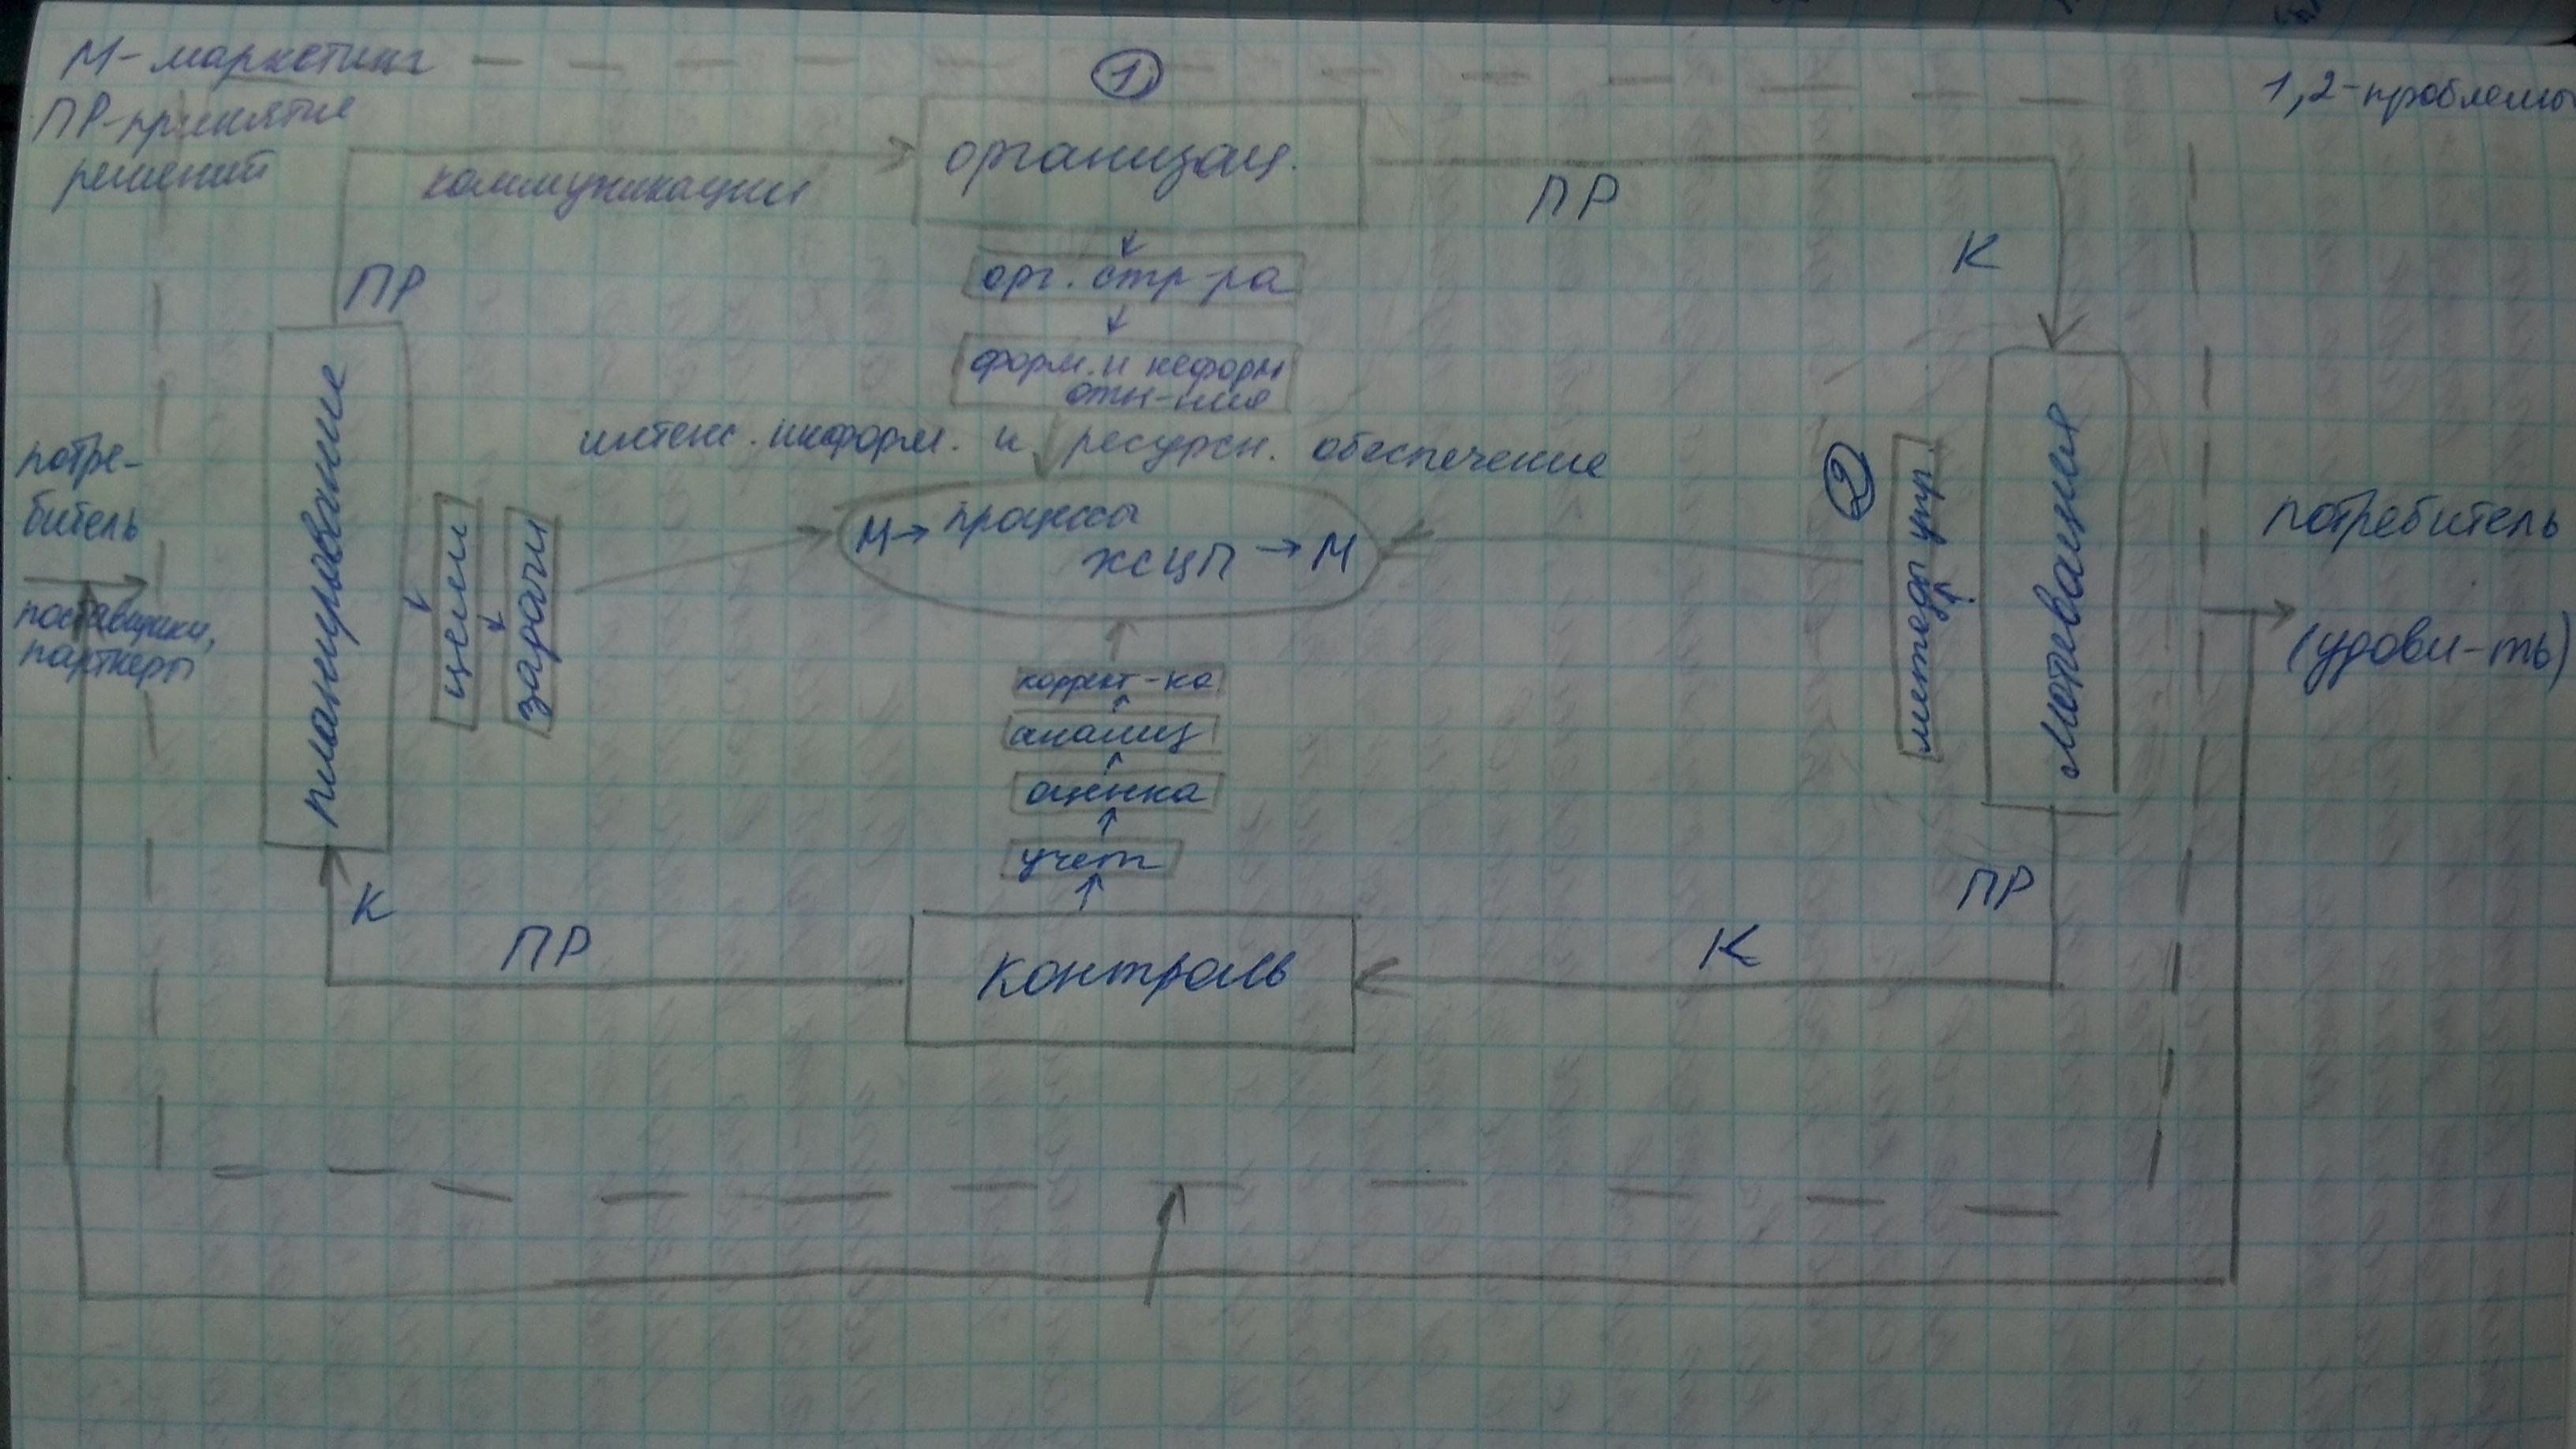 М - маркетинг
ПР - принятие
решений
1
1,2 - проблемы
организац.
коммуникации
ПР
К
ПР
орг. стр-ра
форм. и неформ
отн-ния
интенс. информ. и ресурсн. обеспечение
планирование
цели
задачи
потре-
битель
поставщики,
партнеры
М → процессы
ЖСЦП → М
2
методы упр.
мотивация
потребитель
(удовл-ть)
коррект-ка
анализ
оценка
учет
К
ПР
контроль
К
ПР